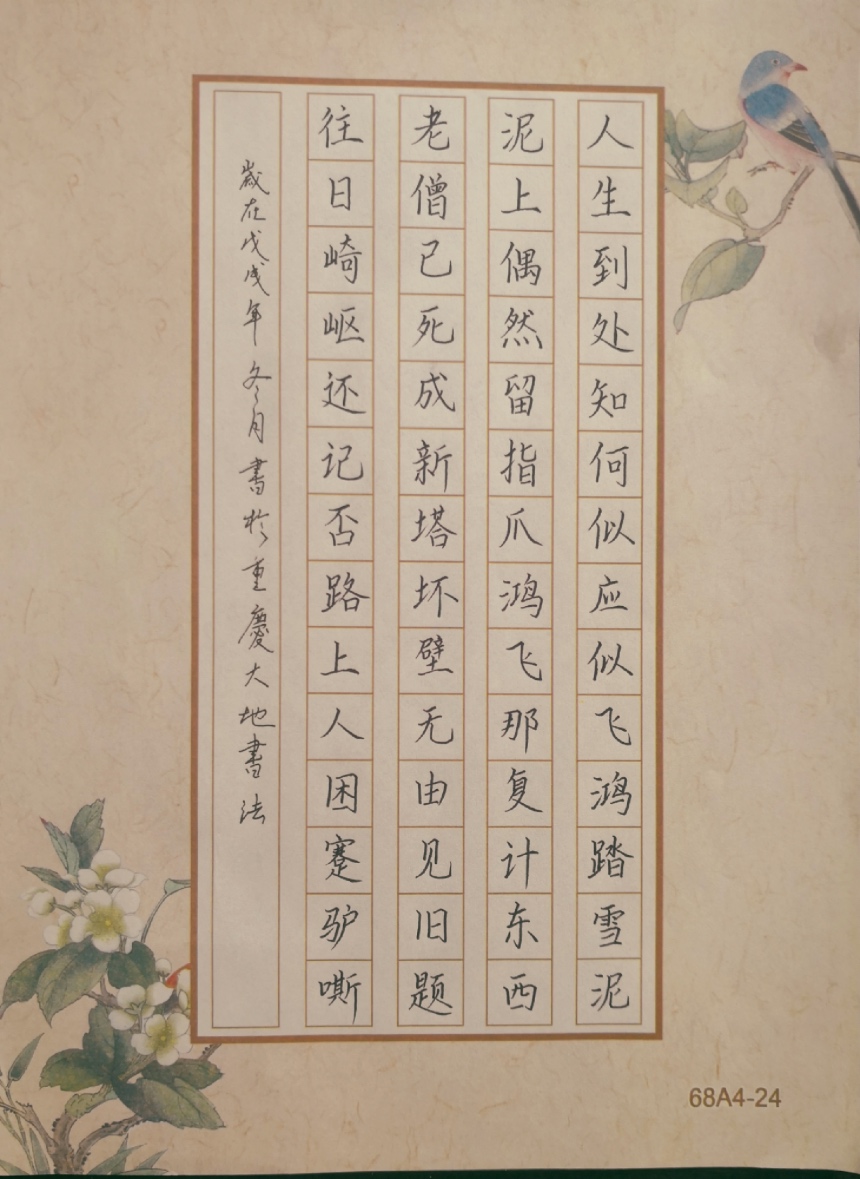 人生到处知何似应似飞鸿踏雪泥
泥上偶然留指爪鸿飞那复计东西
老僧已死成新塔坏壁无由见旧题
往日崎岖还记否路上人困蹇驴嘶
歲在戊戌年冬月書於重慶大地書法
68A4-24